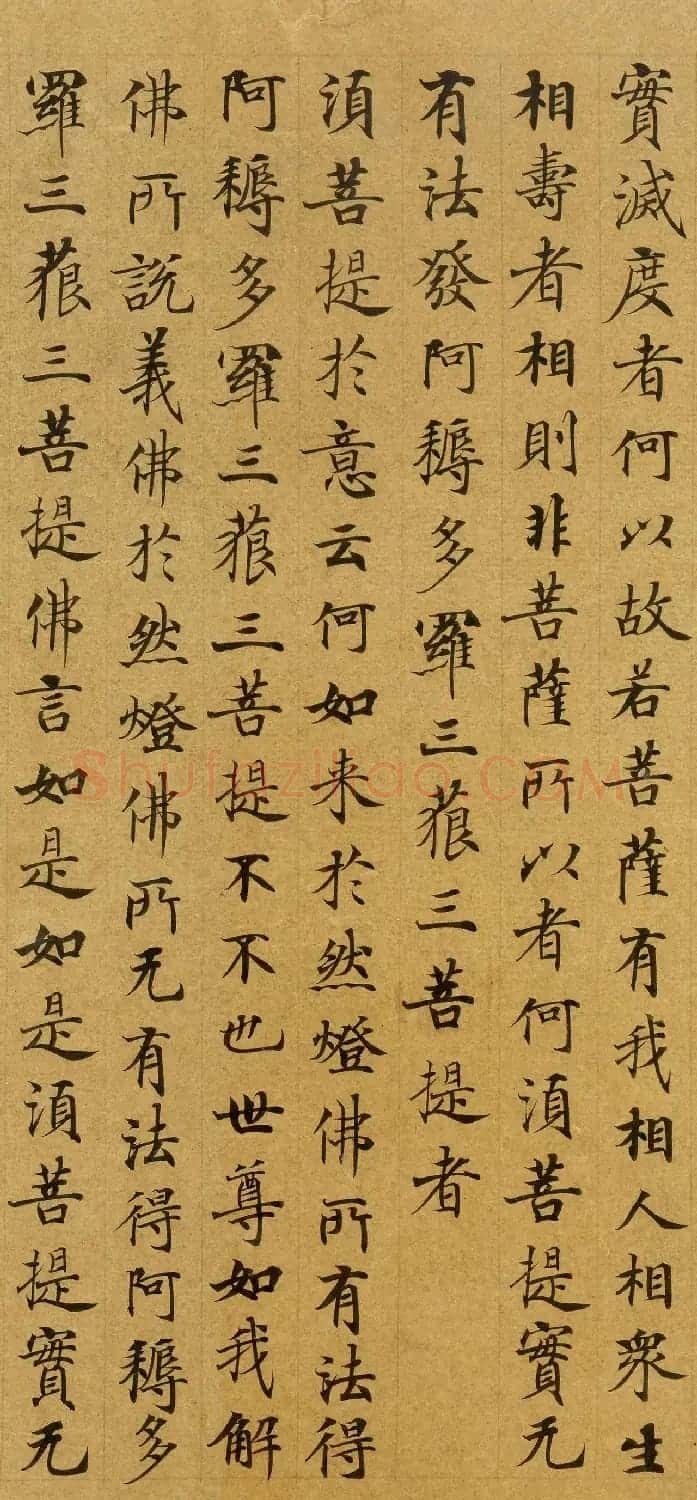 實滅度者何以故若菩薩有我相人相眾生
相壽者相則非菩薩所以者何須菩提實无
有法發阿耨多羅三藐三菩提者
須菩提於意云何如来於然燈佛所有法得
阿耨多羅三藐三菩提不不也世尊如我解
佛所説義佛於然燈佛所无有法得阿耨多
羅三藐三菩提佛言如是如是須菩提實无
Shufaziliao.COM